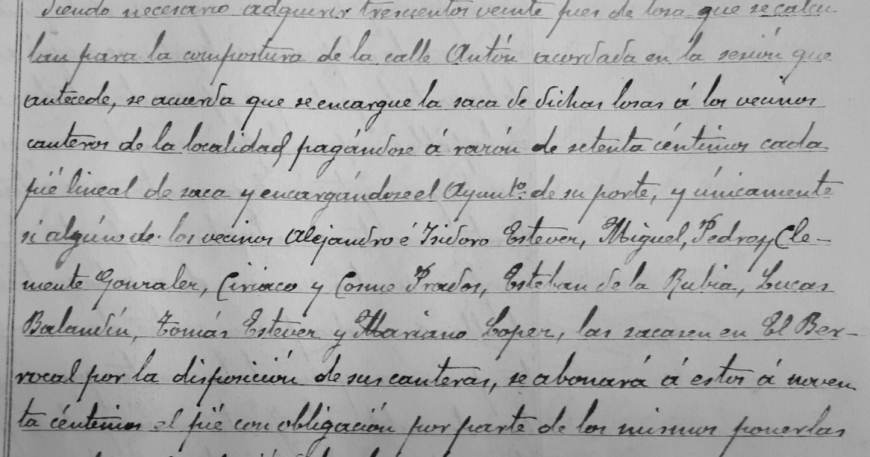 siendo necesario adquirir trescientos veinte pies de losa que se calcu
lan para la compostura de la calle Antón acordada en la sesión que
antecede, se acuerda que se encargue la saca de dichas losas á los vecinos
canteros de la localidad pagándose á razón de setenta céntimos cada
pié lineal de saca y encargándose el Ayuntº. de su porte, y únicamente
si algúno de los vecinos Alejandro é Isidoro Estever, Miguel, Pedro y Cle-
mente Gonzalez, Ciriaco y Cosme Prados, Estéban de la Rubia, Lucas
Balandín, Tomás Estever y Mariano Lopez, las sacasen en El Ber-
rocal por la disposición de sus canteras, se abonará á estos á noven
ta céntimos el pié con obligación por parte de los mismos ponerlas